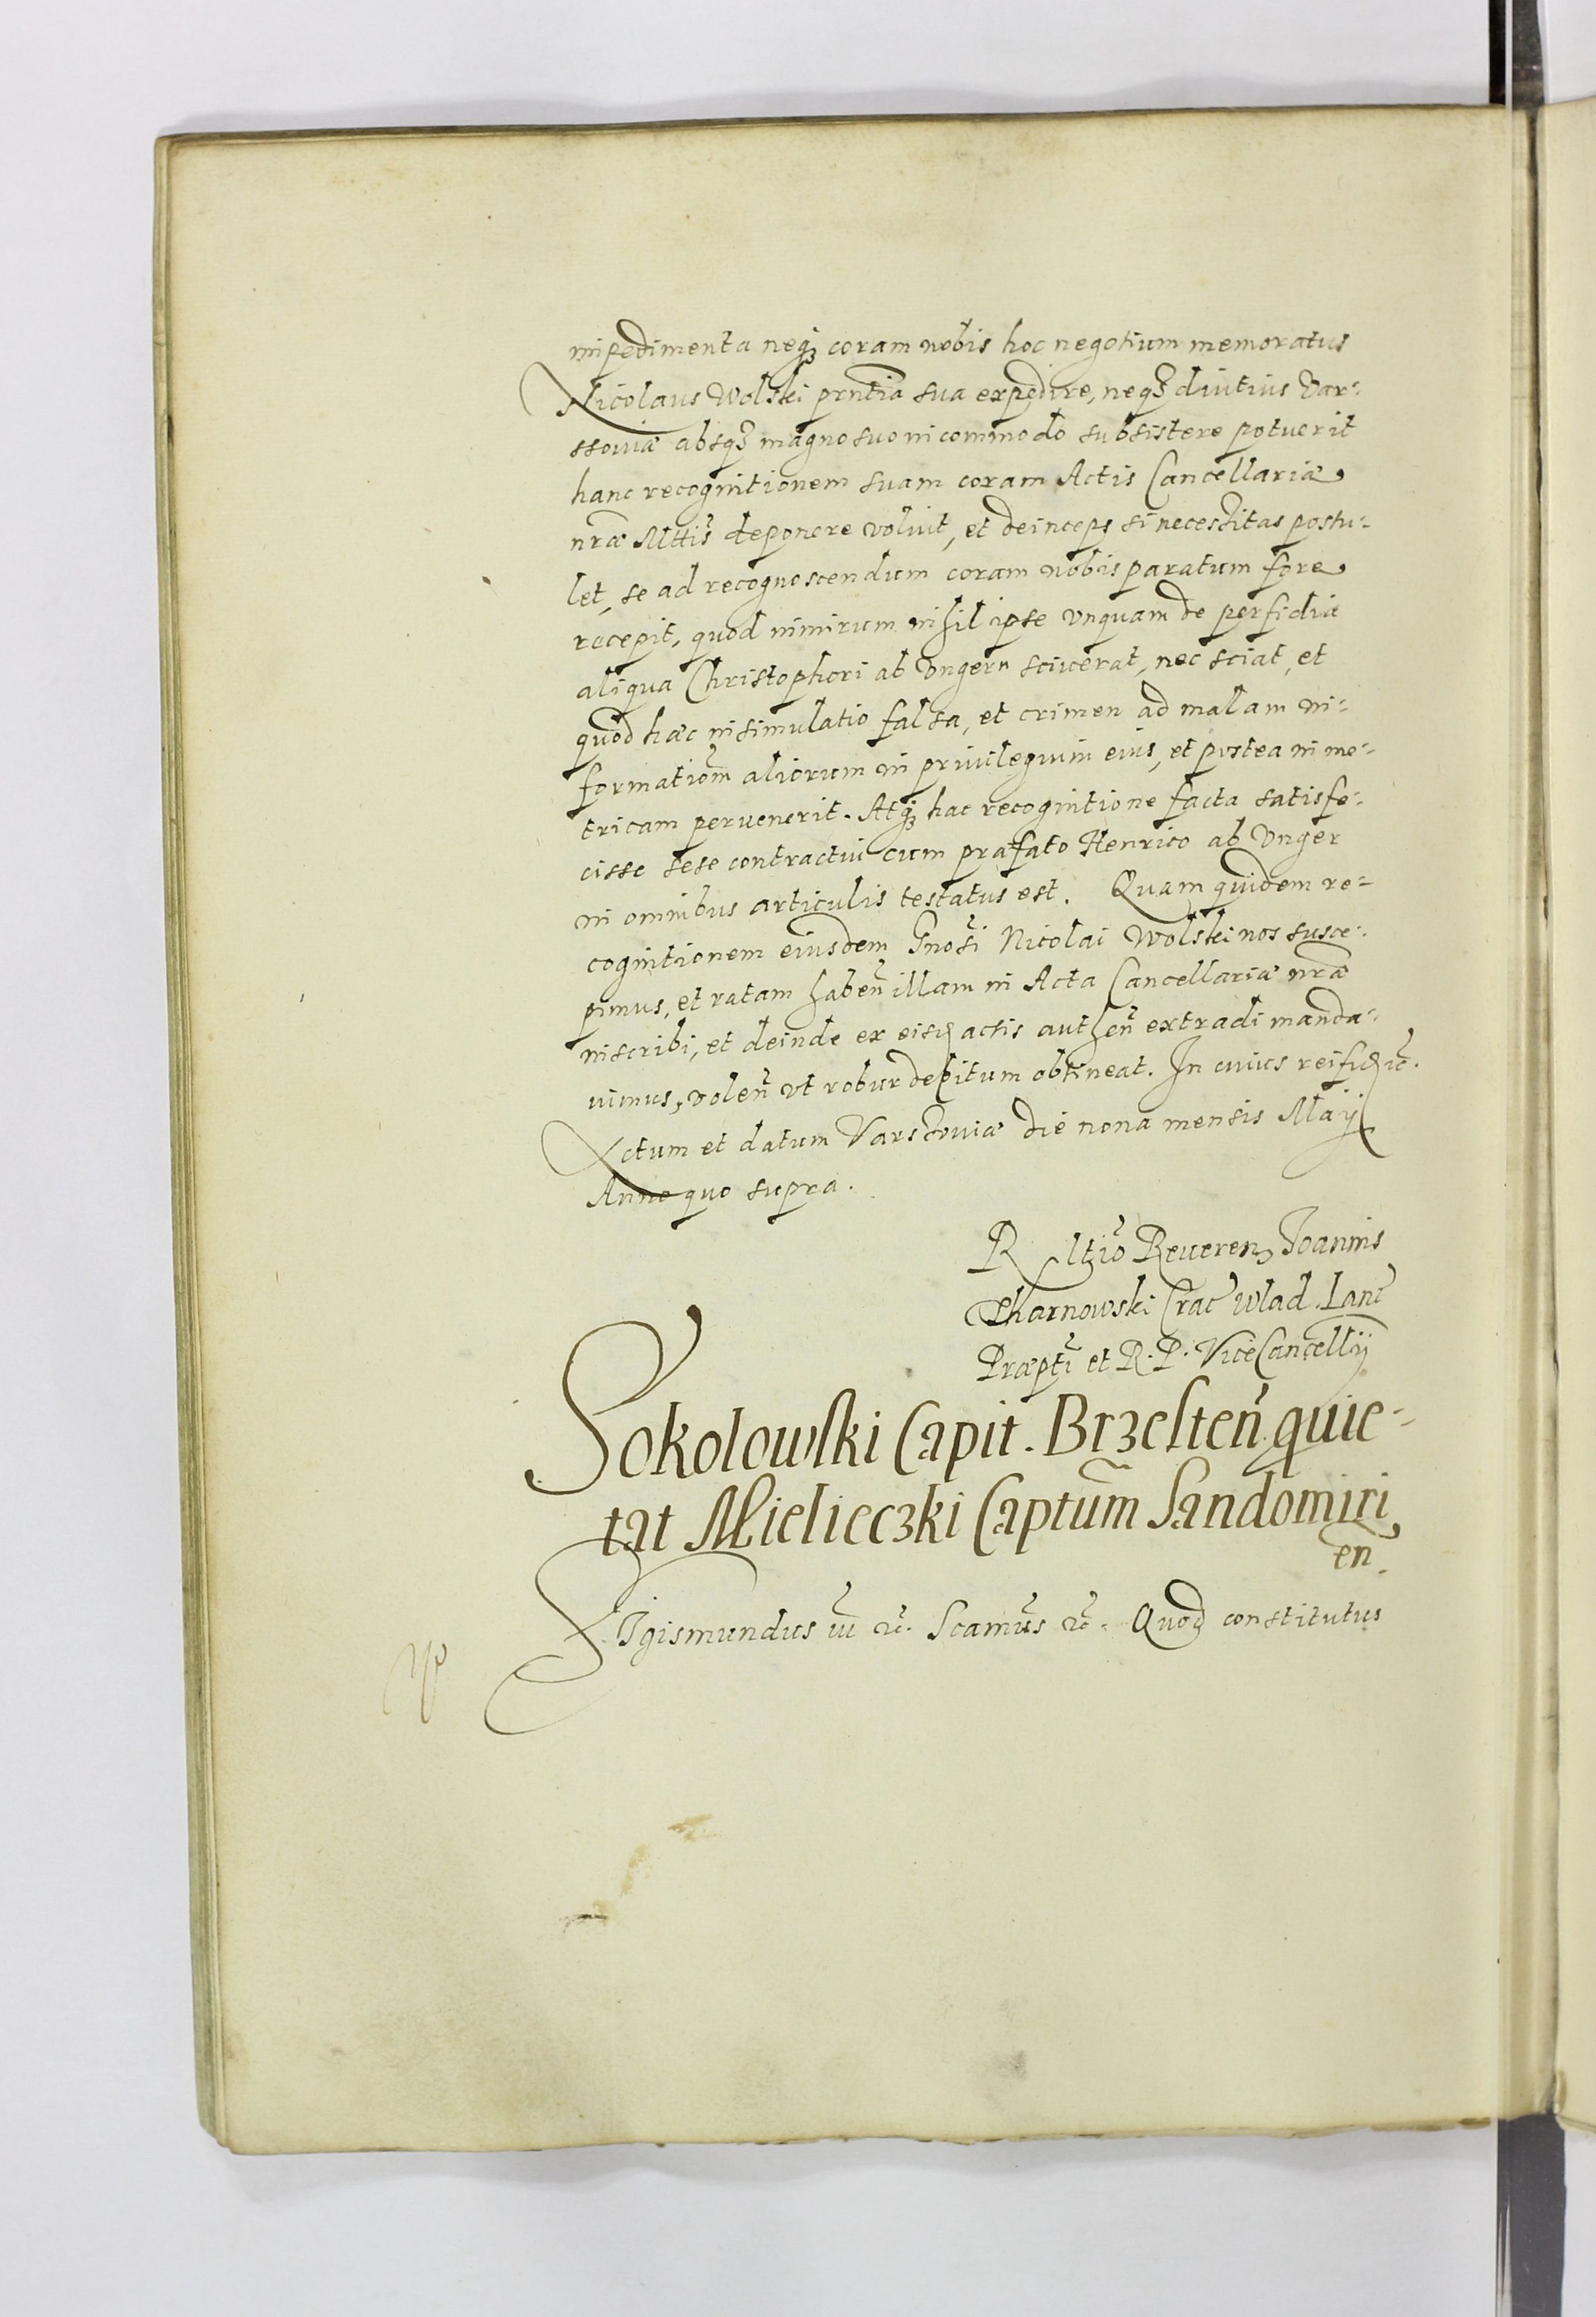 impedimenta neqꝫ coram nobis hoc negotium memoratus
Nicolaus Wolski prntia sua expedire, neqꝫ diutius Var-
ssouiæ absqꝫ magno suo incommodo subsistere potuerit
hanc recognitionem suam coram Actis Cancellariæ
nræ Mttis deponere voluit, et deinceps si necessitas postu-
let, se ad recognoscendum coram nobis paratum fore
recepit, quod nimirum nihil ipse vnquam de perfidia
aliqua Christophori ab Vngern sciuerat, nec sciat, et
quod hæc insimulatio falsa, et crimen ad malam in-
formationem aliorum in priuilegium eius, et postea in me-
tricam peruenerit. Atqꝫ hac recognitione facta satisfe-
cisse sese contractui cum præfato Henrico ab Vnger
in omnibus articulis testatus est. Quam quidem re-
cognitionem eiusdem Gnosi Nicolai Wolski nos susce-
pimus, et ratam haben illam in Acta Cancellariæ nræ
inscribi, et deinde ex eisd actis authen extradi manda-
uimus, volen vt robur debitum obtineat. In cuius rei fid &c.
Actum et datum Varssouiæ die nona mensis Maij
Anno quo supra.
R ltio Reueren Joannis
Tharnowski Crac Wlad. Lanc
Præpti et R. P. ViceCancellij
Sokolowski Capit. Brzesten quie-
tat Mielieczki Captum Sandomiri
en.
Sigismundus iii &c. Scamus &c. Quod constitutus